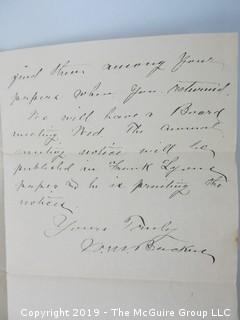 find them among your
papers when you returned.
We will have a Board
meeting Wed. The annual
meeting notice will be
published in Frank Lyons
paper & he is printing the
notices.
Yours Truly
Copyright 2019 - The McGuire Group LLC